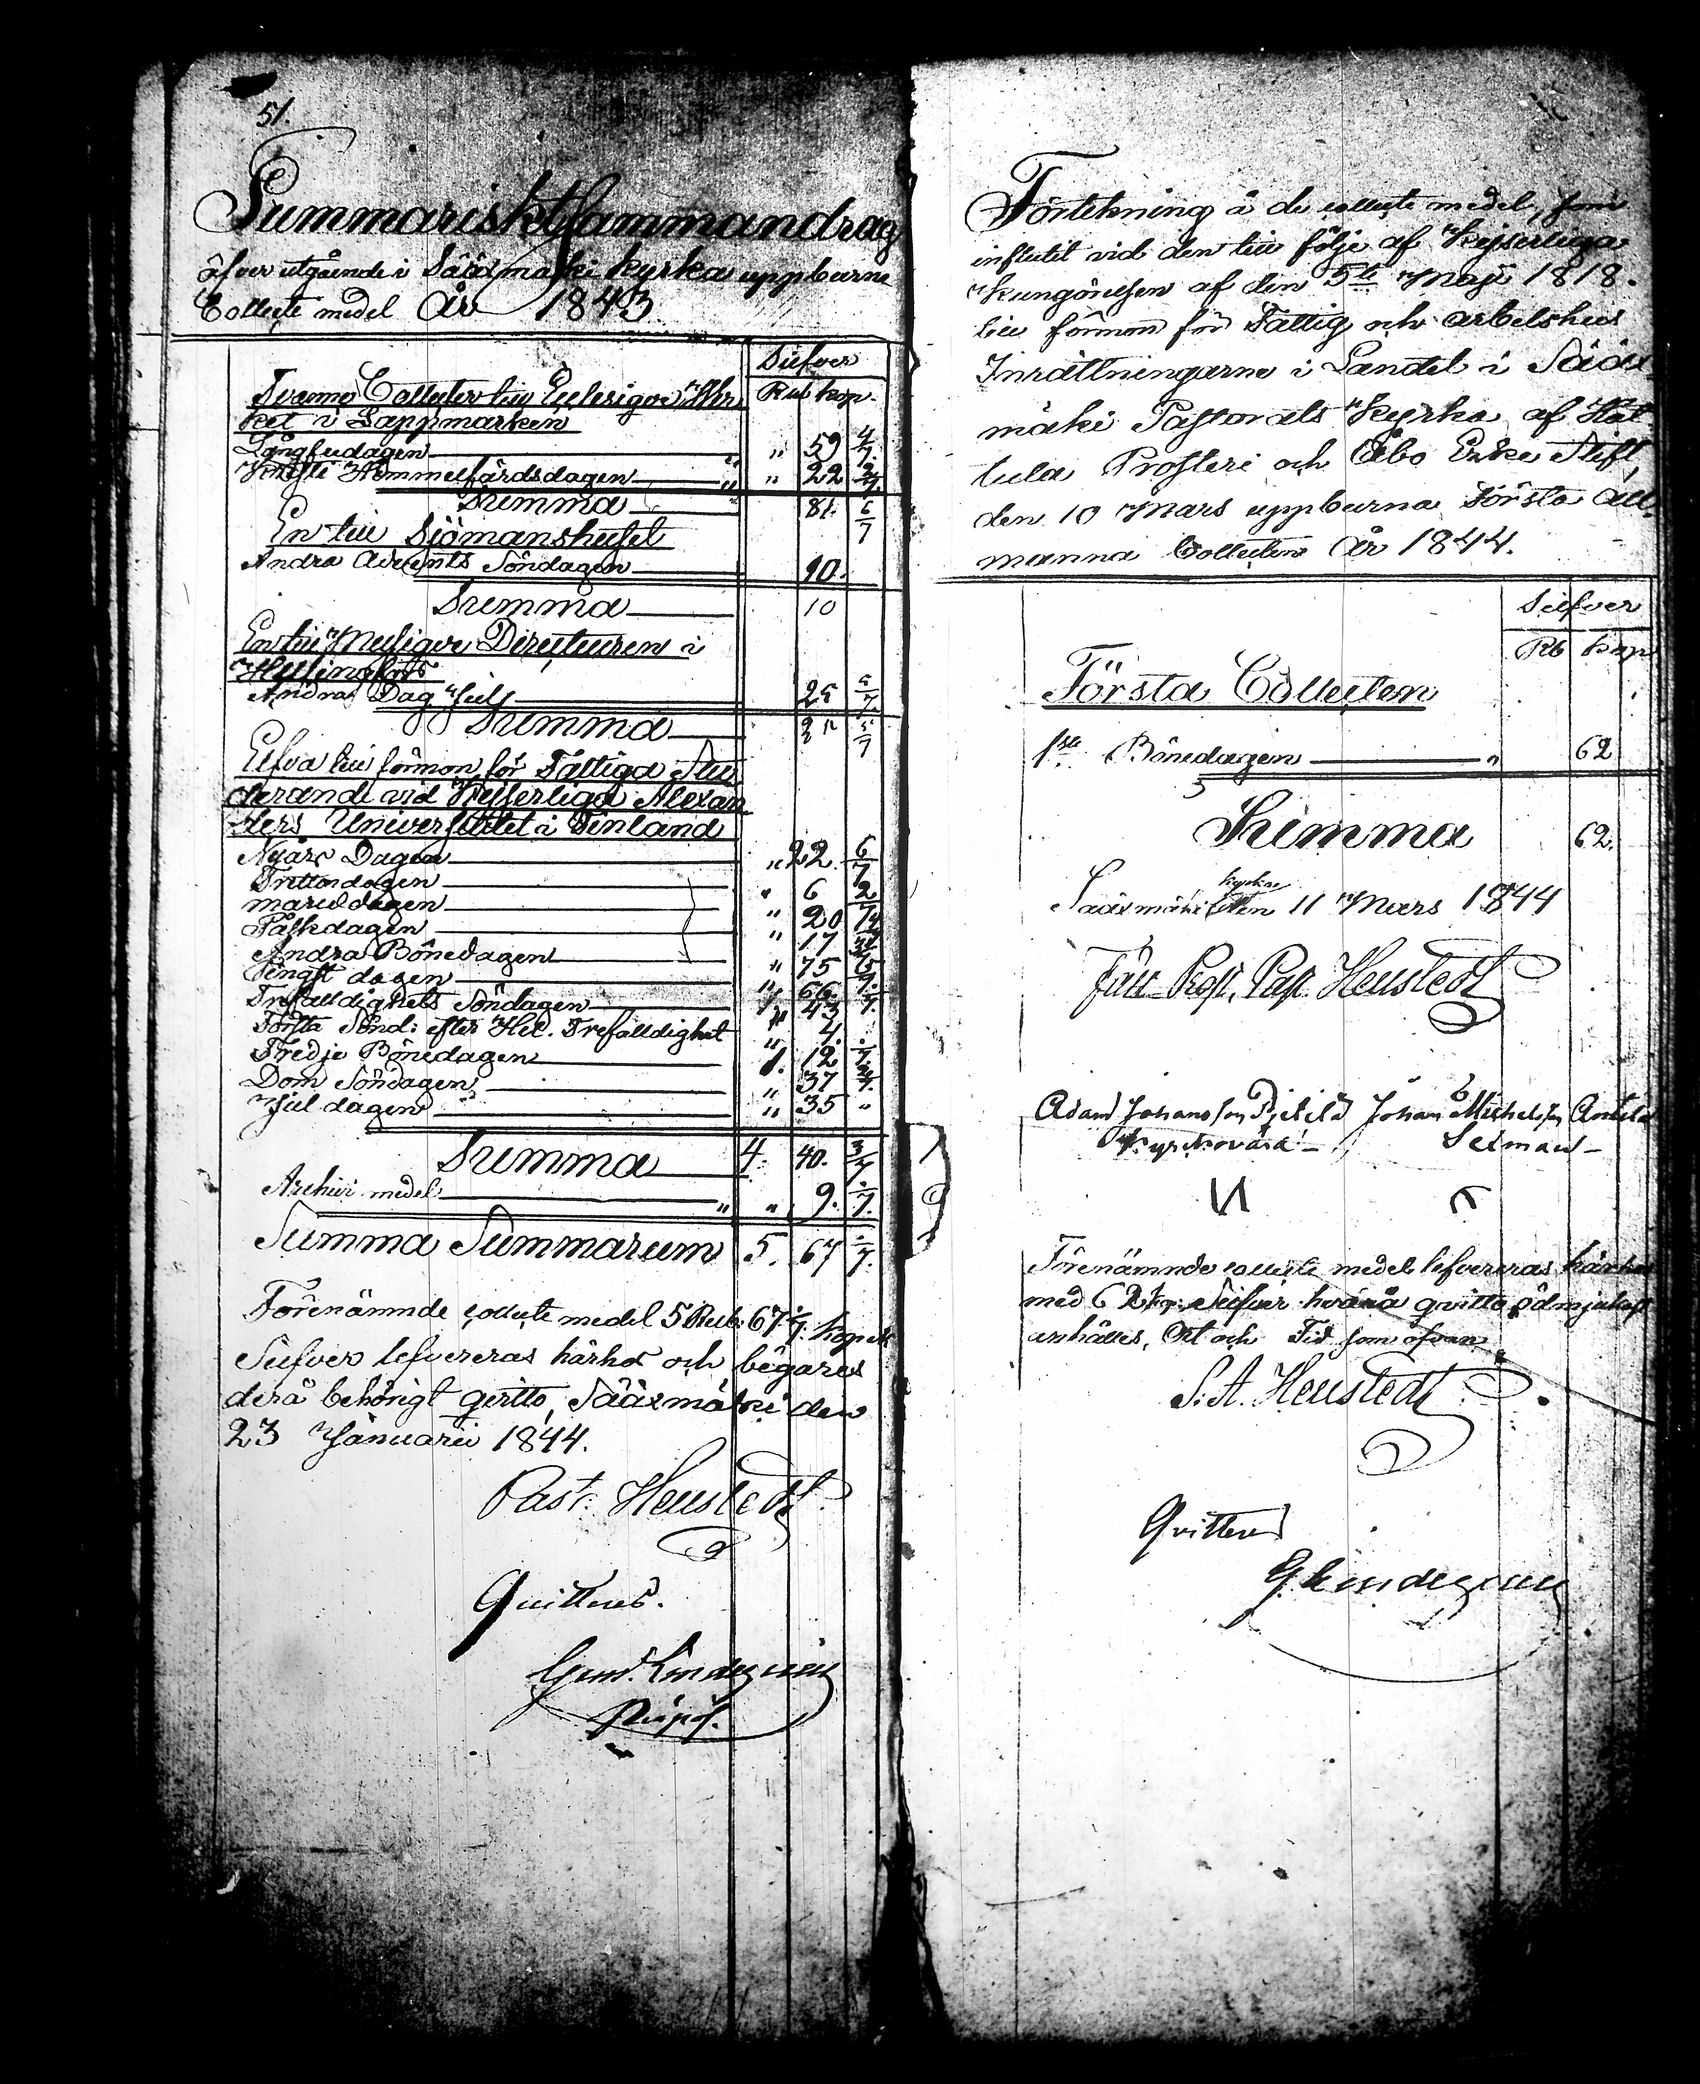 51.
Summariskt Sammandrag
öfver utgående i Sääxmäki kyrka uppburne
Collecte medel År 1843
Silfver
Tvenne Collecter till Ecclesigve Wer
Rub kop.
ket i Lappmarken
Långfredagen " 59 4/7
Christi Himmelfärdsdagen " " 22 2/7
Summa 81. 6/7
En till Sjömanshuset
Andra Advents Söndagen 10.
Summa 10
En till Religive Directeuren i
Helsingfors
Andra Dag Jul 25 5/7
Summa 25 5/7
Elfva till förmon för Fattiga Stu
derande vid Kejserliga Alexan
ders Universitetet i Finland
Nyårs Dagen " 22. 6/7
Trettondagen " 6 2/7
mariæ dagen " 20
Påskdagen " 17
Andra Bönedagen " 75 5/7
Pingst dagen " 66.
Trefalldighets Söndagen " 43
Första Sönd: efter Hel. Trefalldighet " 4.
Tredje Bönedagen 1. 12
Dom Söndagen " 37
Jul dagen " 35 "
Summa 4. 40. 3/7
Archivi medel " " 9.
Summa Summarum 5. 67
Förenämnde collecte medel 5 Rub. 67 kopek
Silfver lefvereras härhos och begäres
derå behörigt qvitto, Sääxmäki den
23 Januarii 1844.
Past: Heustedt
Quitteras.
Förtekning å de collecte medel, som
influtit vid den till följe af Kejserliga
Kungörelsen af den 5te Maji 1818.
till förmon för Fattig och arbetshus
Inrättningarne i Landet i Sääx
mäki Pastorats Kyrka af Hat
tula Prosteri och Åbo Erke Stift,
den 10 Mars uppburna Första All
manna Collecten År 1844.
Silfver
Rb kop
Första Collecten
1sta Bönedagen " 62
Summa 62.
kyrka
Sääxmäki den 11 Mars 1844
Prost, Past. Heustedt
Adam Johansson Johan Michelsson Anttila
Kyrkovärd – Sexman –
Förenämnde collecte medel lefvereras härhos
med 62 kop: Silfver hvarå qvitto ödmjukast
anhålles, Ort och Tid som ofvan
S. A. Heustedt.
Qvitteras